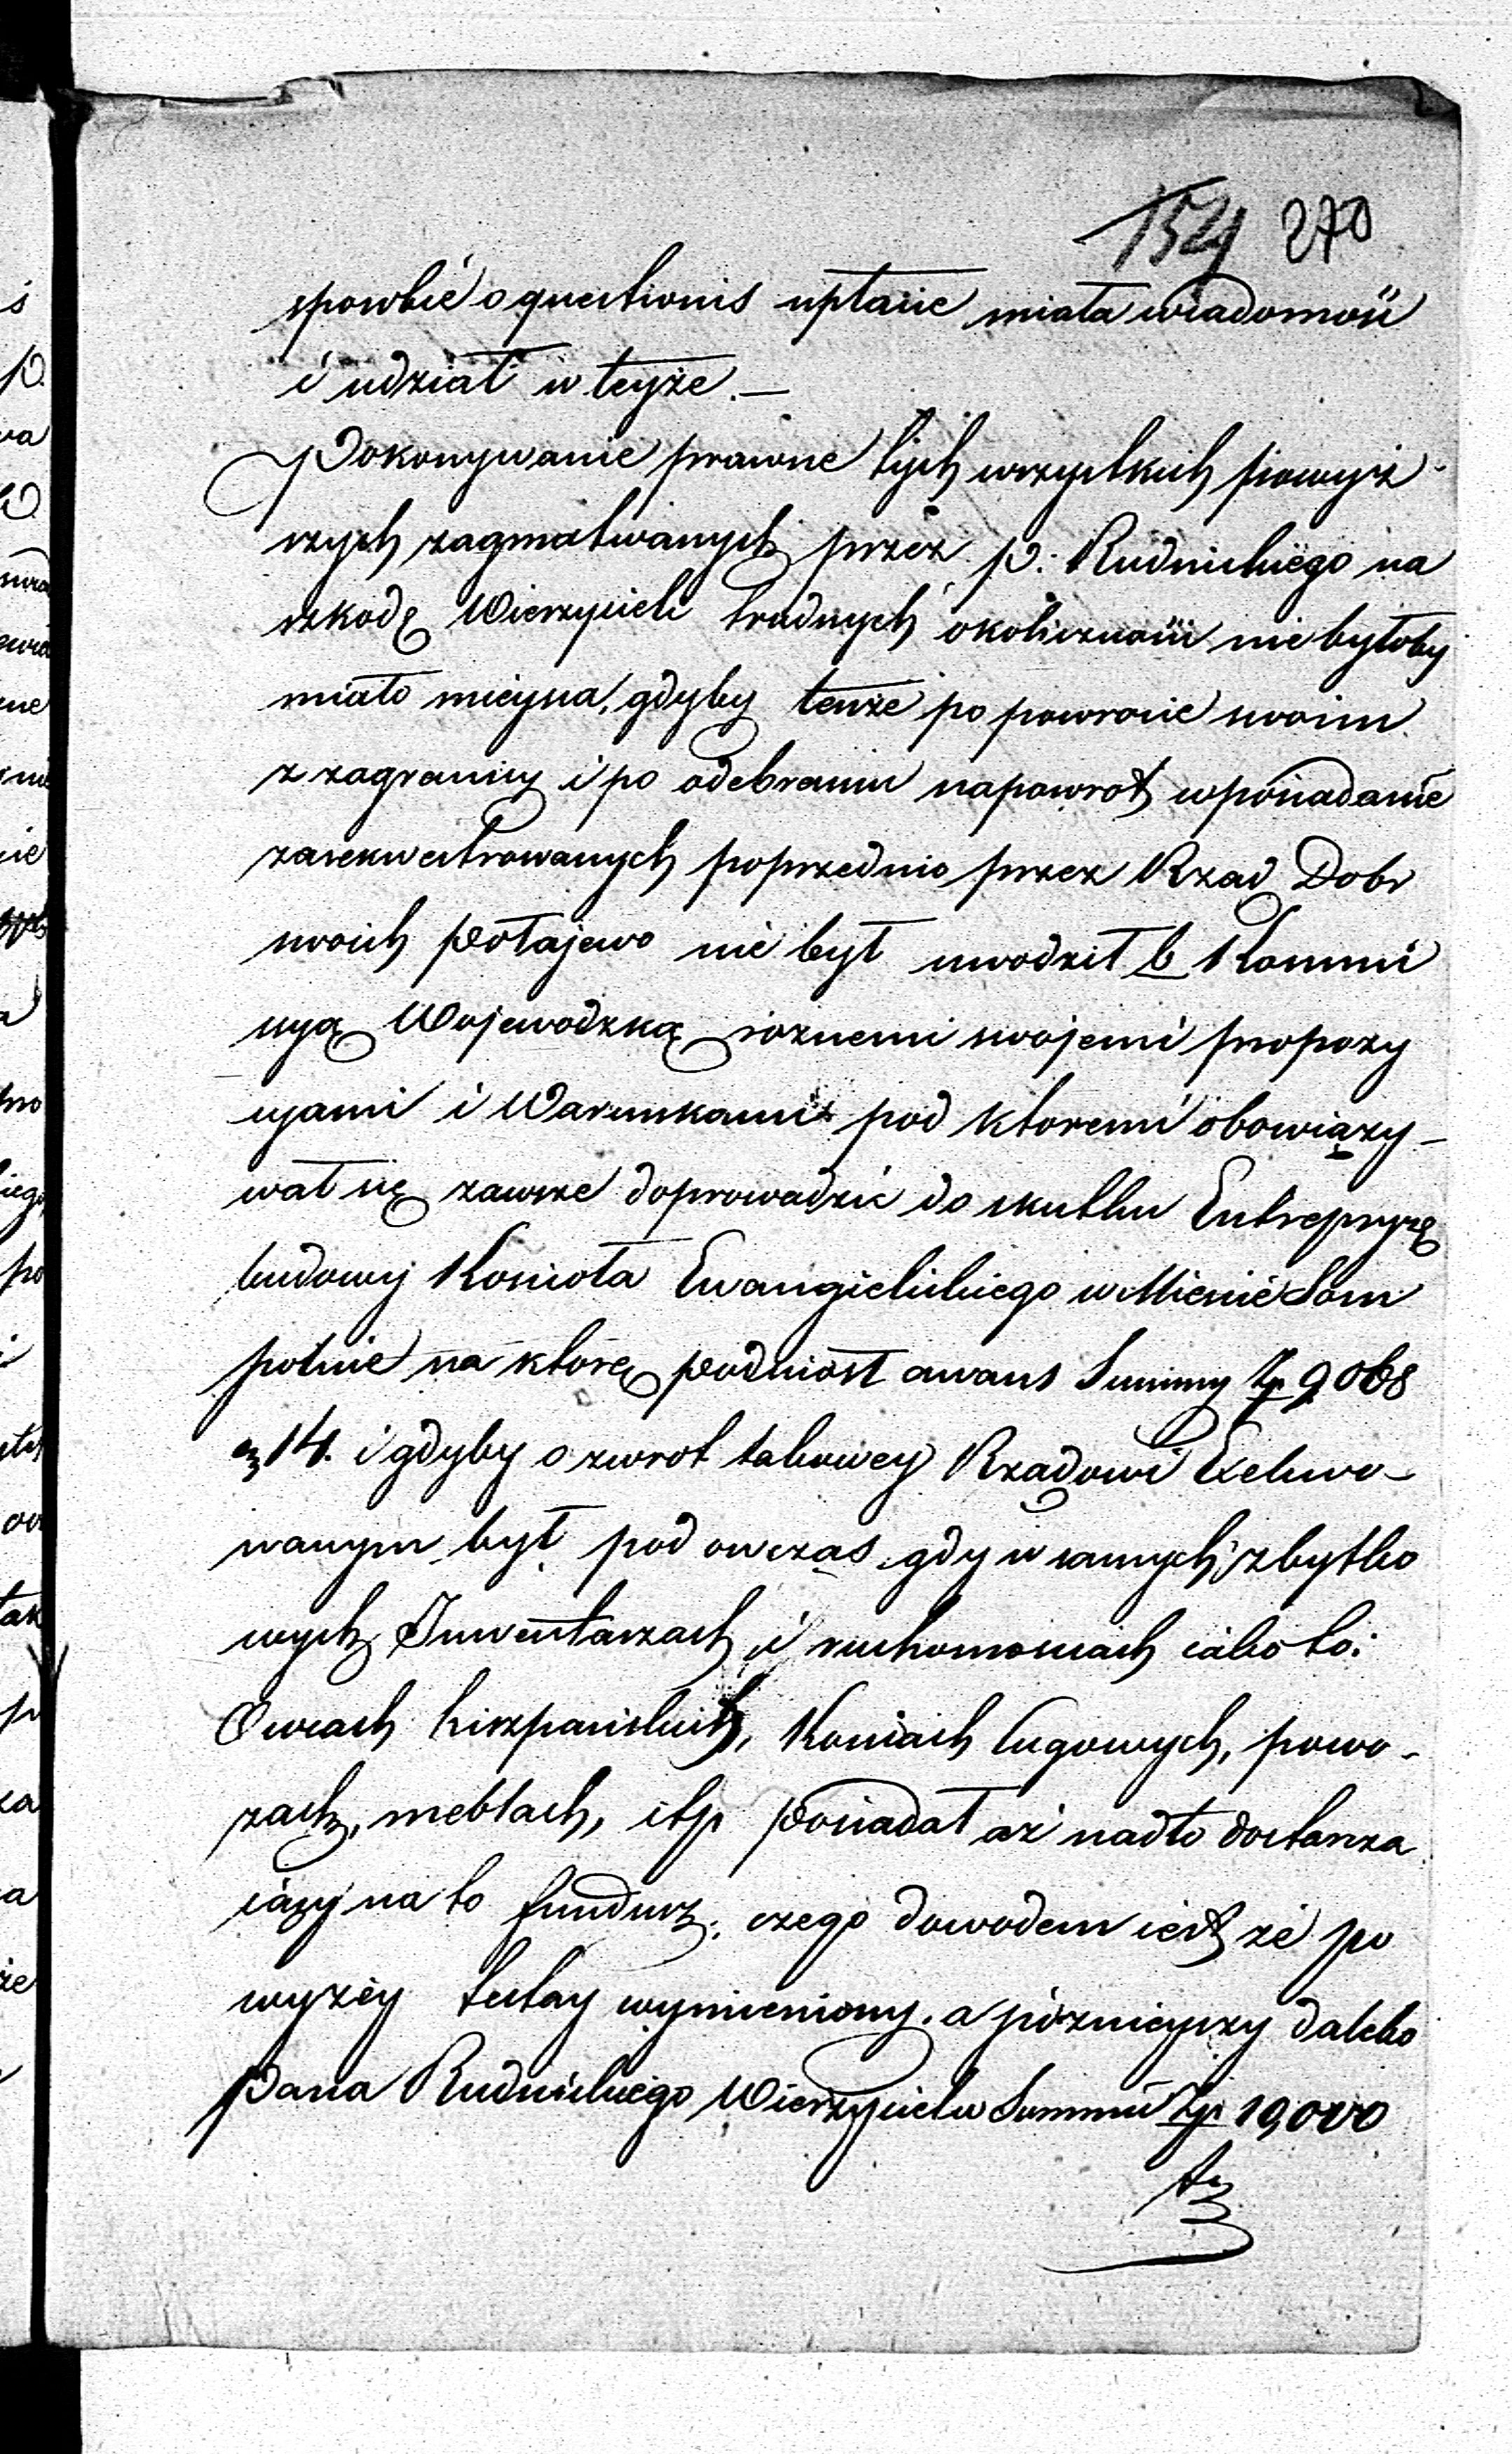 1524 270
sposobie o questionis upłacie miała wiadomość
i udział w teyże.—
Dokonywanie prawne tych wszystkich powyż-
szych zagmatwanych przez P. Rudnickiego na
szkodę Wierzycieli trudnych okoliczności nie byłoby
miało mieysca, gdyby tenże po powrocie swoim
z zagranicy i po odebraniu napowrot w posiadanie
zasekwestrowanych poprzednio przez Rząd Dobr
swoich Połajewo nie był uwodził b Kommis
syą Wojewodzką roznemi swojemi propozy
cyami i Warunkami pod ktoremi obowiązy-
wał się zawsze doprowadzić do skutku Entrepryzę
budowy Kościoła Ewangielickiego w Mieście Som
polnie na ktorę podniosł awans Summy Zp 9,068
14. i gdyby o zwrot takowey Rządowi Exekwo-
wanym był podowczas gdy w samych zbytko
wych Inwentarzach i ruchomosciach iako to:
Owcach hiszpanskich, Koniach Cugowych, powo-
zach, meblach, itp posiadał aż nadto dostarcza
iący na to fundusz, czego dowodem iest że po
wyżey tutay wymieniony, a pózniejszy daleko
Pana Rudnickiego Wierzyciel w Summie Zp 19,000